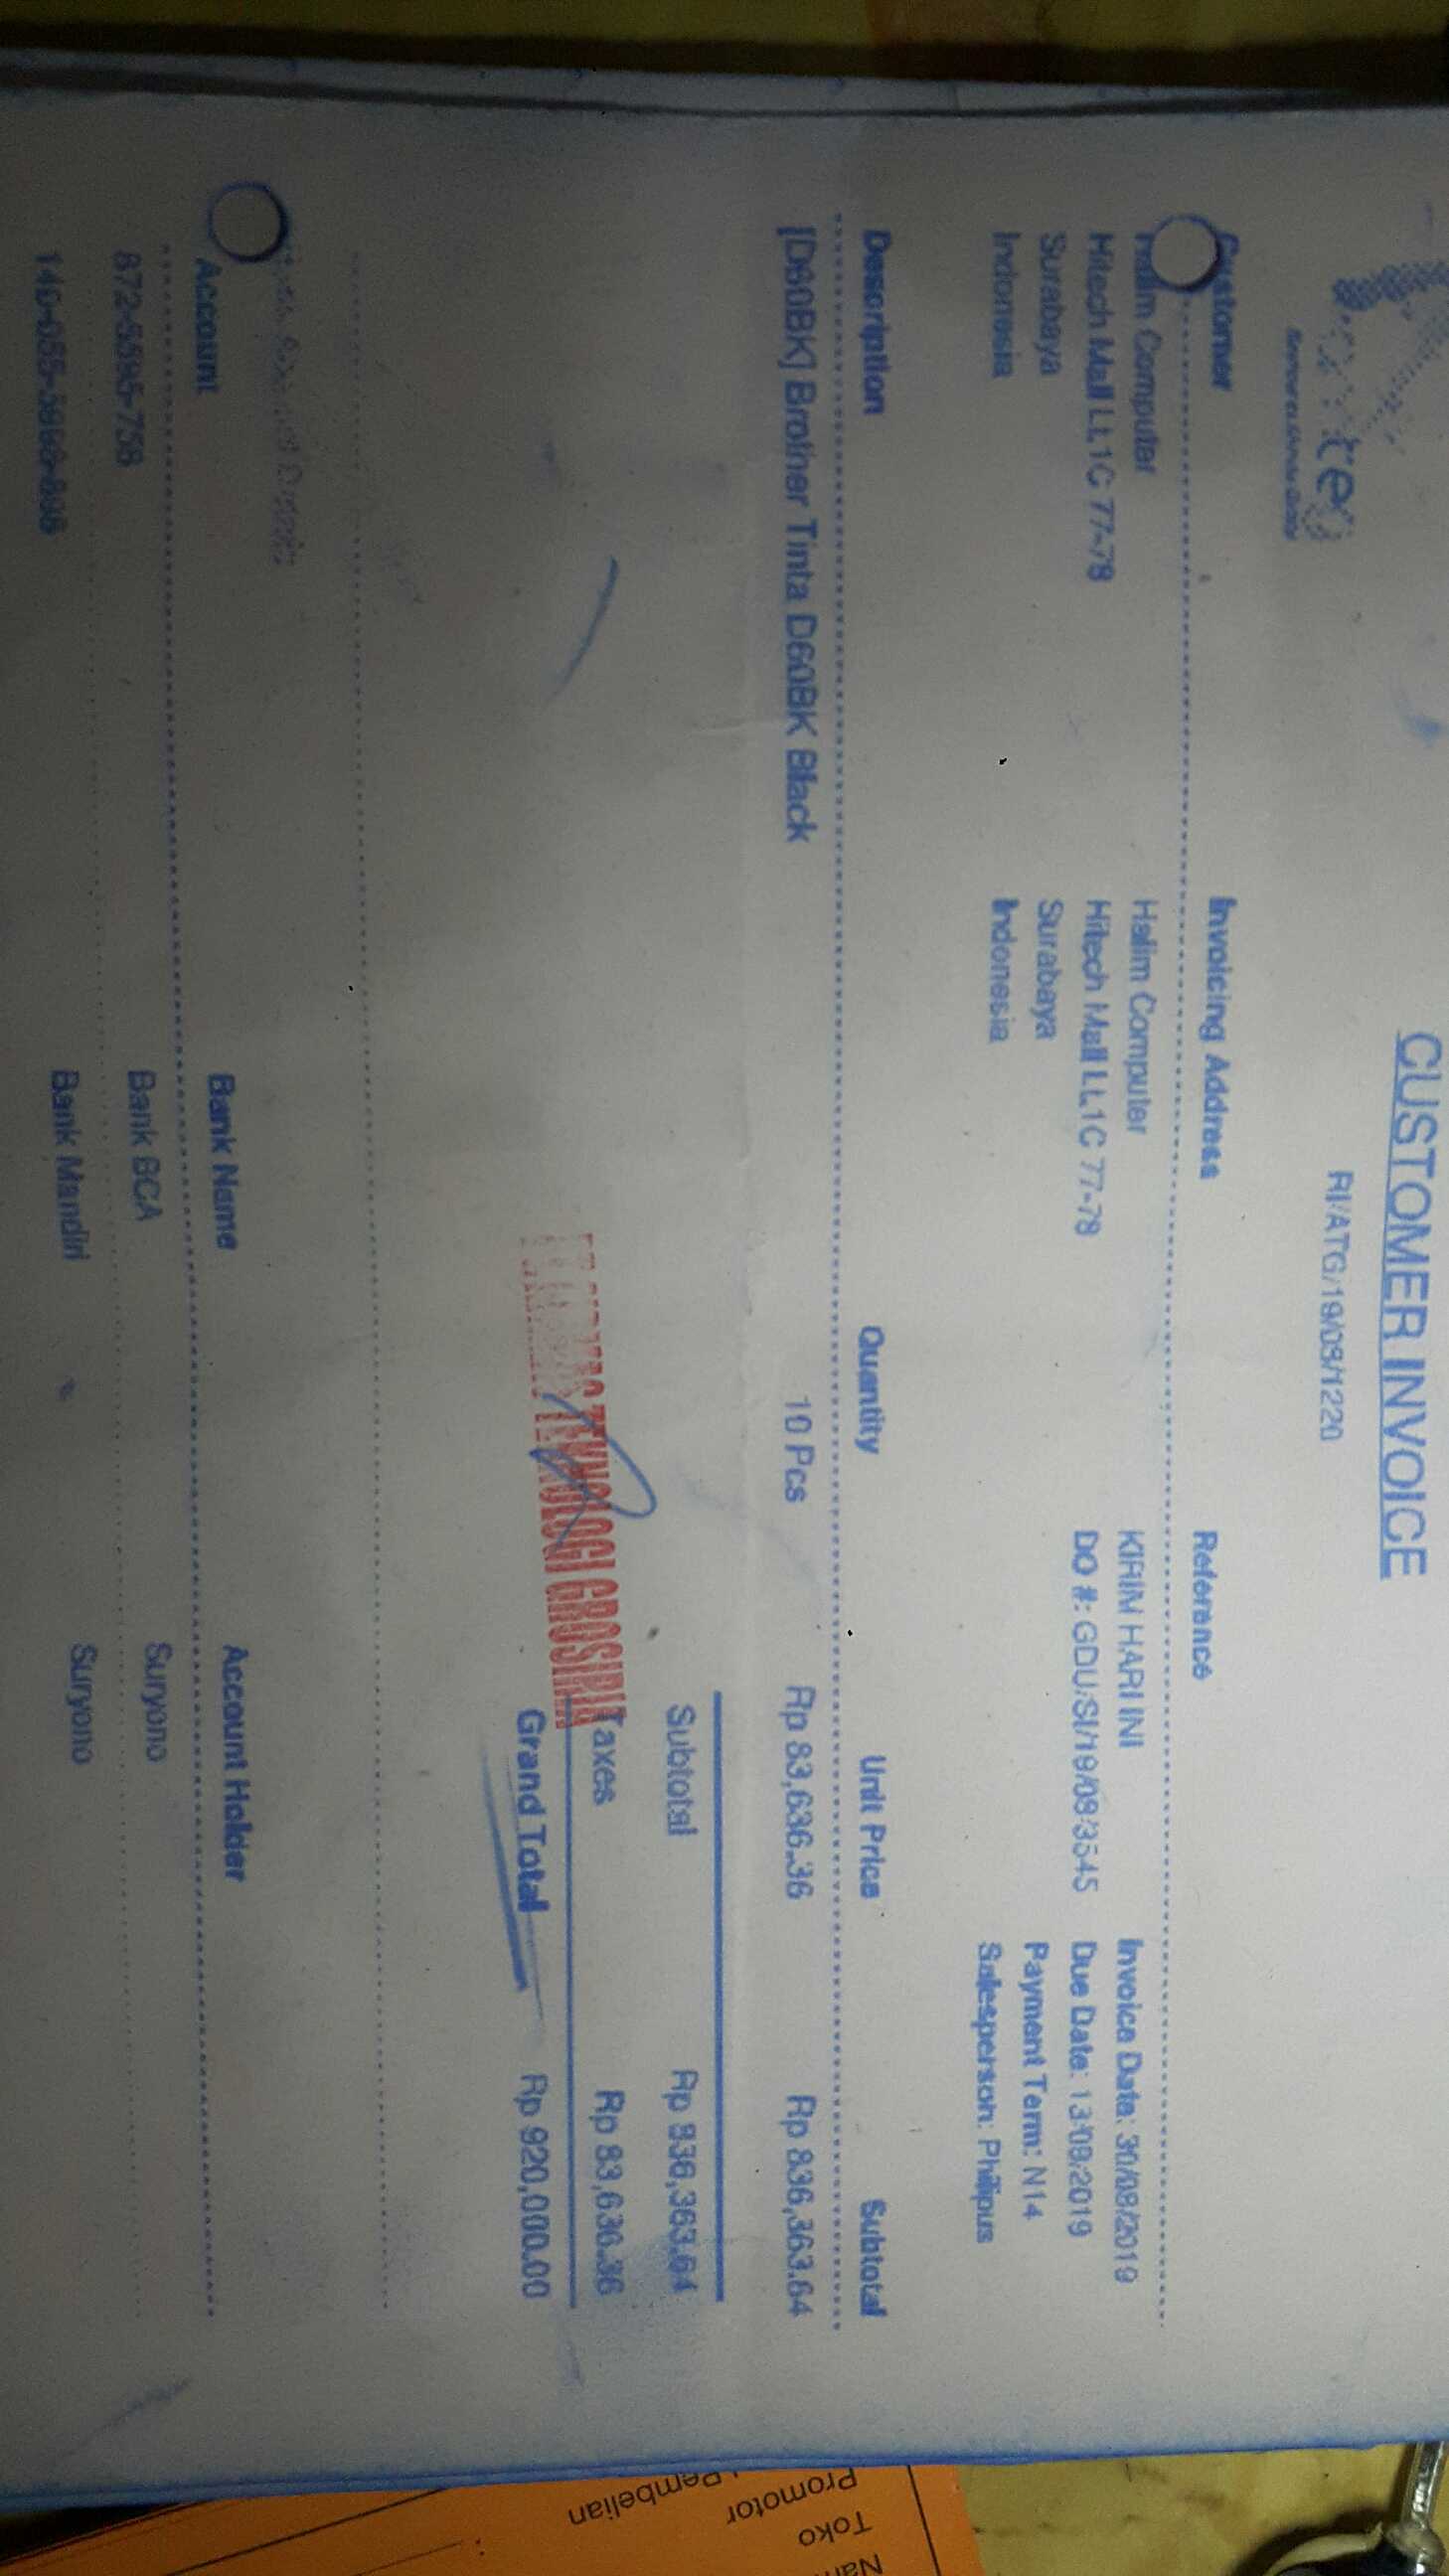 CUSTOMER INVOICE
Customer
Invoicing Address
Reference
Halim Computer
Hitech Mall Lt.1C 77-78
Surabaya
Indonesia
Halim Computer
Hitech Mall Lt.1C 77-78
Surabaya
Indonesia
KIRIM HARI INI
DO #: GDU/SI/19/08/3545
Invoice Date: 30/08/2019
Payment Term: N14
Salesperson: Phillipus
Description Quantity Unit Price Subtotal
[D60BK] Brother Tinta D60BK Black 10 Pcs Rp 83,636.36 Rp 836,363.64
Subtotal Rp 836,363.64
Taxes Rp 83,636.36
Grand Total Rp 920,000.00
TEKNOLOGI GROSIRIA
Account Bank Name Account Holder
Bank BCA Suryono
Bank Mandiri Suryono
Toko
Promotor
Pembelian